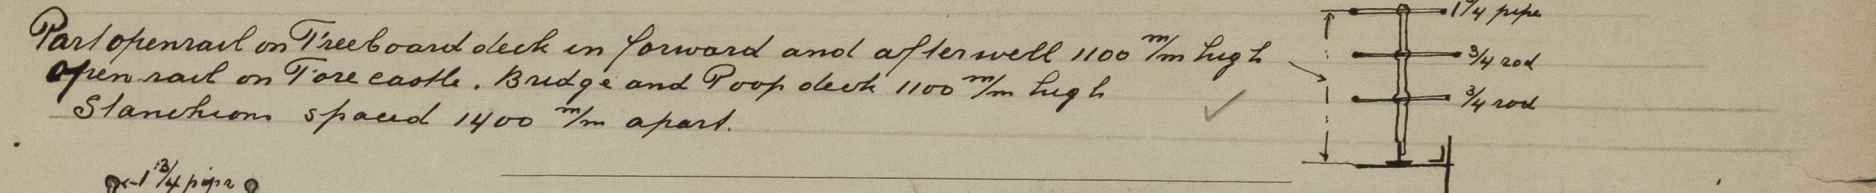 Part open rail on Freeboard deck in forward and after well 1100 m/m high
open rail on Forecastle. Bridge and Poop deck 1100 m/m high
Stanchions spaced 1400 m/m apart.
1 3/4 pipe
3/4 rod
3/4 rod
1 3/4 pipe